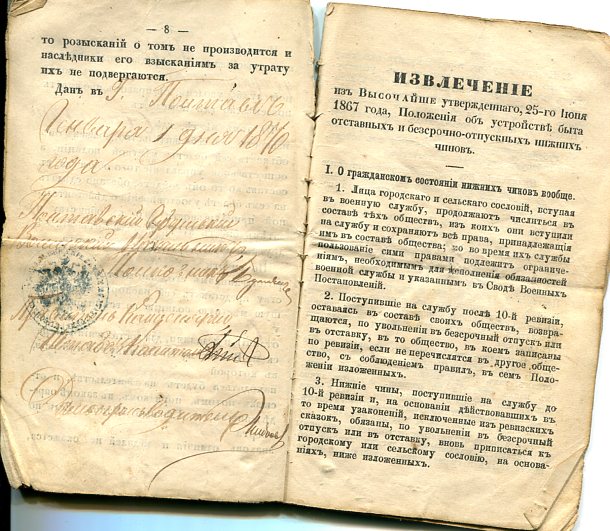 — 8 —
то розысканій о томъ не производится и
наслѣдники его взысканіямъ за утрату
ихъ не подвергаются.
Данъ въ Г. Полтавѣ
Января 1 дня 1870
года
Полтавскій
Воинскій Начальникъ
Дѣлопроизводитель
ИЗВЛЕЧЕНІЕ
изъ Высочайше утвержденнаго, 25-го Іюня
1867 года, Положенія объ устройствѣ быта
отставныхъ и безсрочно-отпускныхъ нижнихъ
чиновъ.
I. О гражданскомъ состояніи нижнихъ чиновъ вообще.
1. Лица городскаго и сельскаго сословій, вступая
въ военную службу, продолжаютъ числиться въ
составѣ тѣхъ обществъ, изъ коихъ они вступили
на службу и сохраняютъ всѣ права, принадлежащія
имъ въ составѣ общества; но во время ихъ службы
пользованіе сими правами подлежитъ ограниче-
ніямъ, необходимымъ для исполненія обязанностей
военной службы и указаннымъ въ Сводѣ Военныхъ
Постановленій.
2. Поступившіе на службу послѣ 10-й ревизіи,
оставаясь въ составѣ своихъ обществъ, возвра-
щаются, по увольненіи въ безсрочный отпускъ или
въ отставку, въ то общество, въ коемъ записаны
по ревизіи, если не перечислятся въ другое обще-
ство, съ соблюденіемъ правилъ, въ семъ Поло-
женіи изложенныхъ.
3. Нижніе чины, поступившіе на службу до
10-й ревизіи и, на основаніи дѣйствовавшихъ въ
то время узаконеній, исключенные изъ ревизскихъ
сказокъ, обязаны, по увольненіи въ безсрочный
отпускъ или въ отставку, вновь приписаться къ
городскому или сельскому сословію, на основа-
ніяхъ, ниже изложенныхъ.